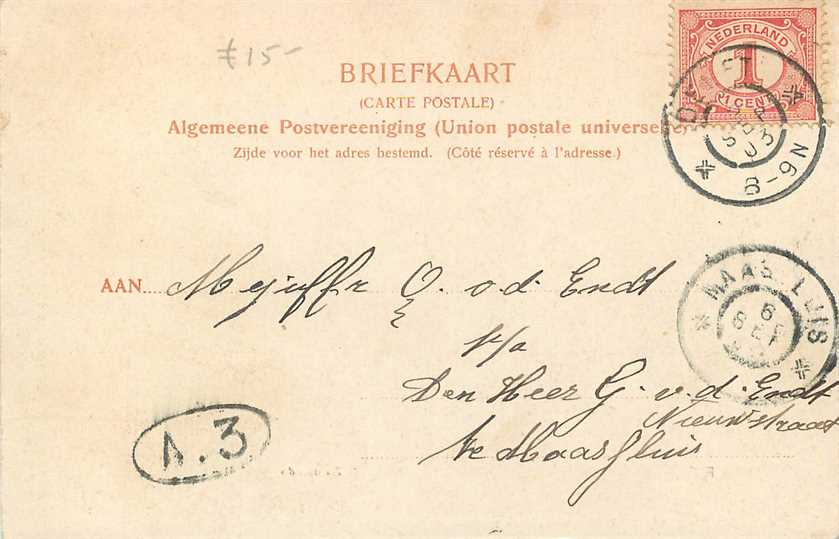 £ 15-
NEDERLAND
1
1 CENT
BRIEFKAART
(CARTE POSTALE)
Algemeene Postvereeniging (Union postale universelle)
Zijde voor het adres bestemd. (Côté réservé à l'adresse.)
SEP
6-9N
AAN Mejuffr G. v.d. Endt
p/a
Den Heer G. v.d. Endt
Nieuwstraat
te Maassluis
MAASSLUIS
6
SEP
A.3